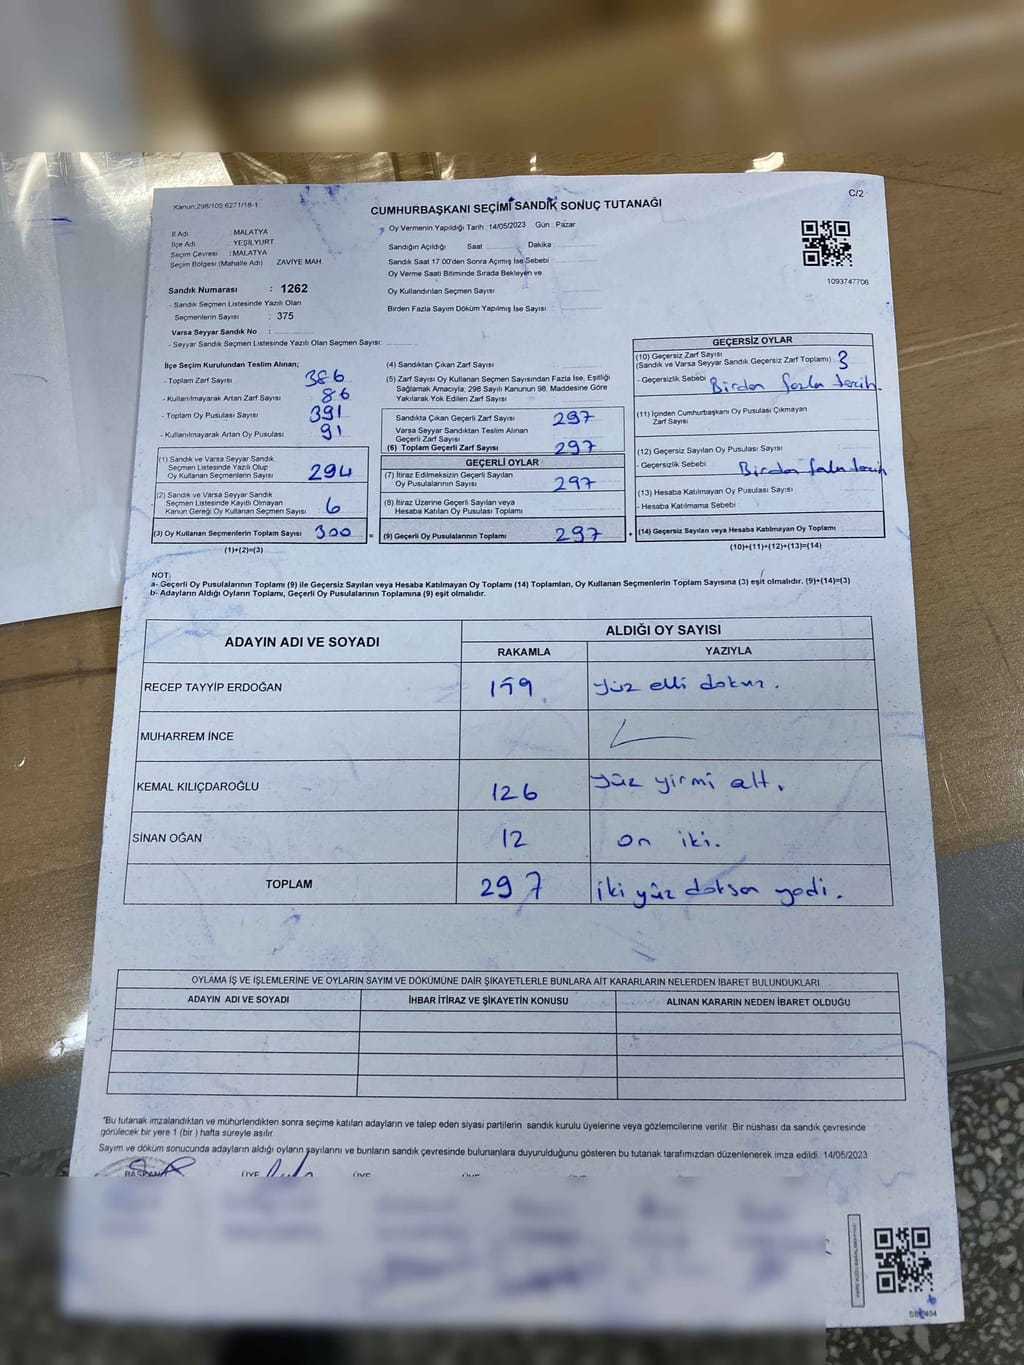 Kanun:298/105 6271/18-1
C/2
CUMHURBAŞKANI SEÇİMİ SANDIK SONUÇ TUTANAĞI
İl Adı : MALATYA
İlçe Adı : YEŞİLYURT
Seçim Çevresi : MALATYA
Seçim Bölgesi (Mahalle Adı) ZAVİYE MAH
Oy Vermenin Yapıldığı Tarih :14/05/2023 Gün : Pazar
Sandığın Açıldığı Saat Dakika
Sandık Saat 17.00'den Sonra Açımış İse Sebebi
Oy Verme Saati Bitiminde Sırada Bekleyen ve
Oy Kullandırılan Seçmen Sayısı
Birden Fazla Sayım Döküm Yapılmış İse Sayısı :
1093747706
Sandık Numarası : 1262
- Sandık Seçmen Listesinde Yazılı Olan
Seçmenlerin Sayısı : 375
Varsa Seyyar Sandık No :
- Seyyar Sandık Seçmen Listesinde Yazılı Olan Seçmen Sayısı:
İlçe Seçim Kurulundan Teslim Alınan;
- Toplam Zarf Sayısı 386
- Kullanılmayarak Artan Zarf Sayısı : 86
- Toplam Oy Pusulası Sayısı 391
- Kullanılmayarak Artan Oy Pusulası : 91
(1) Sandık ve Varsa Seyyar Sandık
Seçmen Listesinde Yazılı Olup
Oy Kullanan Seçmenlerin Sayısı 294
(2) Sandık ve Varsa Seyyar Sandık
Seçmen Listesinde Kayıtlı Olmayan
Kanun Gereği Oy Kullanan Seçmen Sayısı 6
(3) Oy Kullanan Seçmenlerin Toplam Sayısı 300 =
(1)+(2)=(3)
(4) Sandıktan Çıkan Zarf Sayısı :
(5) Zarf Sayısı Oy Kullanan Seçmen Sayısından Fazla İse, Eşitliği
Sağlamak Amacıyla; 298 Sayılı Kanunun 98. Maddesine Göre
Yakılarak Yok Edilen Zarf Sayısı
Sandıkta Çıkan Geçerli Zarf Sayısı 297
Varsa Seyyar Sandıktan Teslim Alınan
Geçerli Zarf Sayısı
(6) Toplam Geçerli Zarf Sayısı 297
GEÇERLİ OYLAR
(7) İtiraz Edilmeksizin Geçerli Sayılan
Oy Pusulalarının Sayısı 297
(8) İtiraz Üzerine Geçerli Sayılan veya
Hesaba Katılan Oy Pusulası Toplamı
(9) Geçerli Oy Pusulalarının Toplamı 297 +
GEÇERSİZ OYLAR
(10) Geçersiz Zarf Sayısı
(Sandık ve Varsa Seyyar Sandık Geçersiz Zarf Toplamı) 3
- Geçersizlik Sebebi Birden fazla tercih.
(11) İçinden Cumhurbaşkanı Oy Pusulası Çıkmayan
Zarf Sayısı
(12) Geçersiz Sayılan Oy Pusulası Sayısı
- Geçersizlik Sebebi
(13) Hesaba Katılmayan Oy Pusulası Sayısı
- Hesaba Katılmama Sebebi
(14) Geçersiz Sayılan veya Hesaba Katılmayan Oy Toplamı
(10)+(11)+(12)+(13)=(14)
NOT:
a- Geçerli Oy Pusulalarının Toplamı (9) ile Geçersiz Sayılan veya Hesaba Katılmayan Oy Toplamı (14) Toplamları, Oy Kullanan Seçmenlerin Toplam Sayısına (3) eşit olmalıdır. (9)+(14)=(3)
b- Adayların Aldığı Oyların Toplamı, Geçerli Oy Pusulalarının Toplamına (9) eşit olmalıdır.
ADAYIN ADI VE SOYADI ALDIĞI OY SAYISI
RAKAMLA YAZIYLA
RECEP TAYYİP ERDOĞAN 159 yüz elli dokuz.
MUHARREM İNCE
KEMAL KILIÇDAROĞLU 126 yüz yirmi altı.
SİNAN OĞAN 12 on iki.
TOPLAM 297 iki yüz doksan yedi.
OYLAMA İŞ VE İŞLEMLERİNE VE OYLARIN SAYIM VE DÖKÜMÜNE DAİR ŞİKAYETLERLE BUNLARA AİT KARARLARIN NELERDEN İBARET BULUNDUKLARI
ADAYIN ADI VE SOYADI İHBAR İTİRAZ VE ŞİKAYETİN KONUSU ALINAN KARARIN NEDEN İBARET OLDUĞU
"Bu tutanak imzalandıktan ve mühürlendikten sonra seçime katılan adayların ve talep eden siyasi partilerin sandık kurulu üyelerine veya gözlemcilerine verilir. Bir nüshası da sandık çevresinde
görülecek bir yere 1 (bir ) hafta süreyle asılır.
Sayım ve döküm sonucunda adayların aldığı oyların sayılarını ve bunların sandık çevresinde bulunanlara duyurulduğunu gösteren bu tutanak tarafımızdan düzenlenerek imza edildi. 14/05/2023
BAŞKAN ÜYE ÜYE ÜYE ÜYE